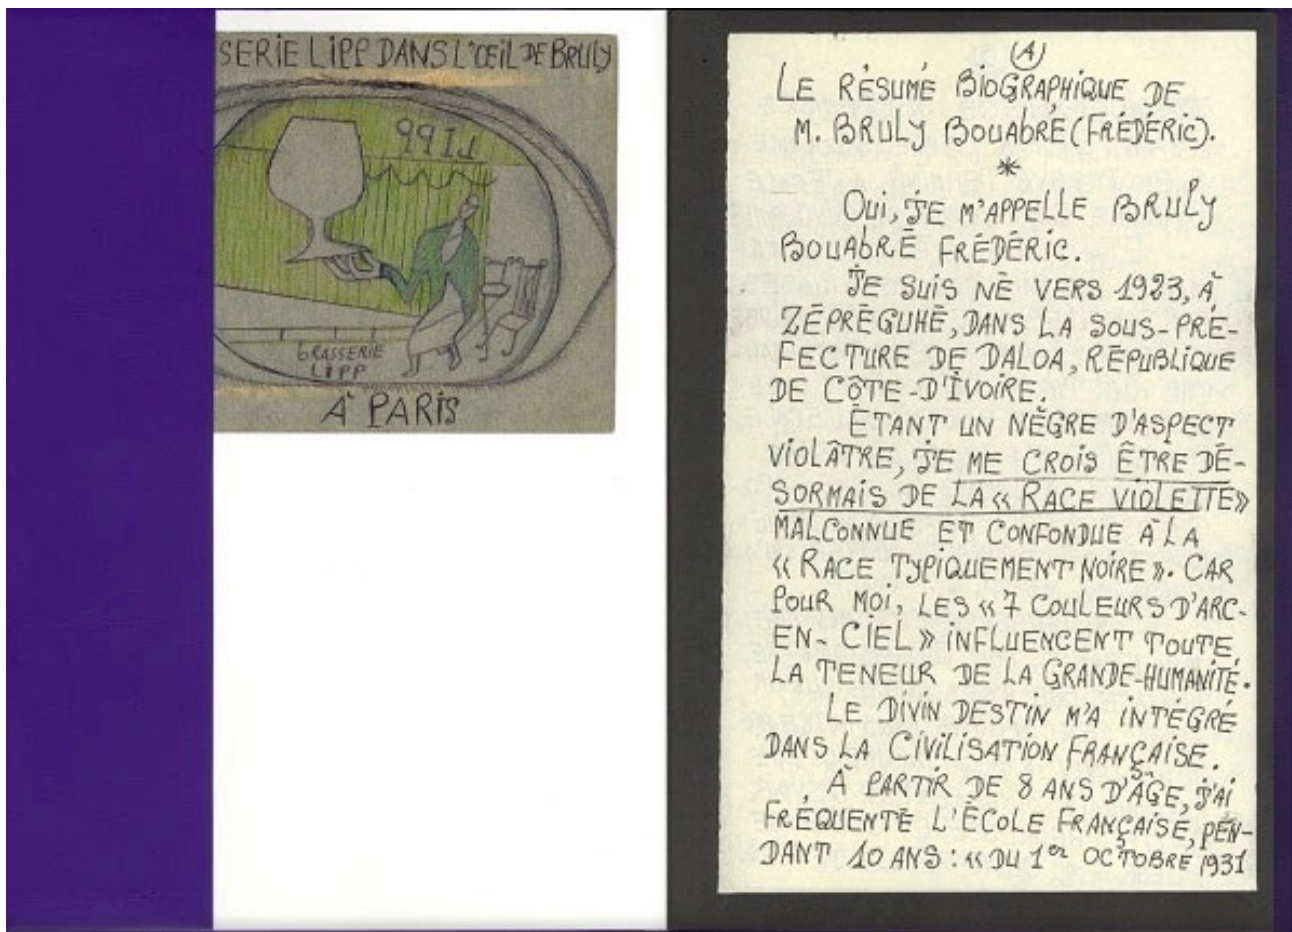 SERIE LIPP DANS L'ŒIL DE BRULY
LIPP
BRASSERIE
LIPP
À PARIS
(A)
LE RÉSUMÉ BIOGRAPHIQUE DE
M. BRULY BOUABRÉ (FRÉDÉRIC).
*
OUI, JE M'APPELLE BRULY
BOUABRÉ FRÉDÉRIC.
JE SUIS NÉ VERS 1923, À
ZÉPRÉGUHÉ, DANS LA SOUS-PRÉ-
FECTURE DE DALOA, RÉPUBLIQUE
DE CÔTE-D'IVOIRE.
ÉTANT UN NÈGRE D'ASPECT
VIOLÂTRE, JE ME CROIS ÊTRE DÉ-
SORMAIS DE LA « RACE VIOLETTE »
MALCONNUE ET CONFONDUE À LA
« RACE TYPIQUEMENT NOIRE ». CAR
POUR MOI, LES « 7 COULEURS D'ARC-
EN-CIEL » INFLUENCENT TOUTE
LA TENEUR DE LA GRANDE-HUMANITÉ.
LE DIVIN DESTIN M'A INTÉGRÉ
DANS LA CIVILISATION FRANÇAISE.
À PARTIR DE 8 ANS D'ÂGE, J'AI
FRÉQUENTÉ L'ÉCOLE FRANÇAISE, PEN-
DANT 10 ANS : « DU 1er OCTOBRE 1931